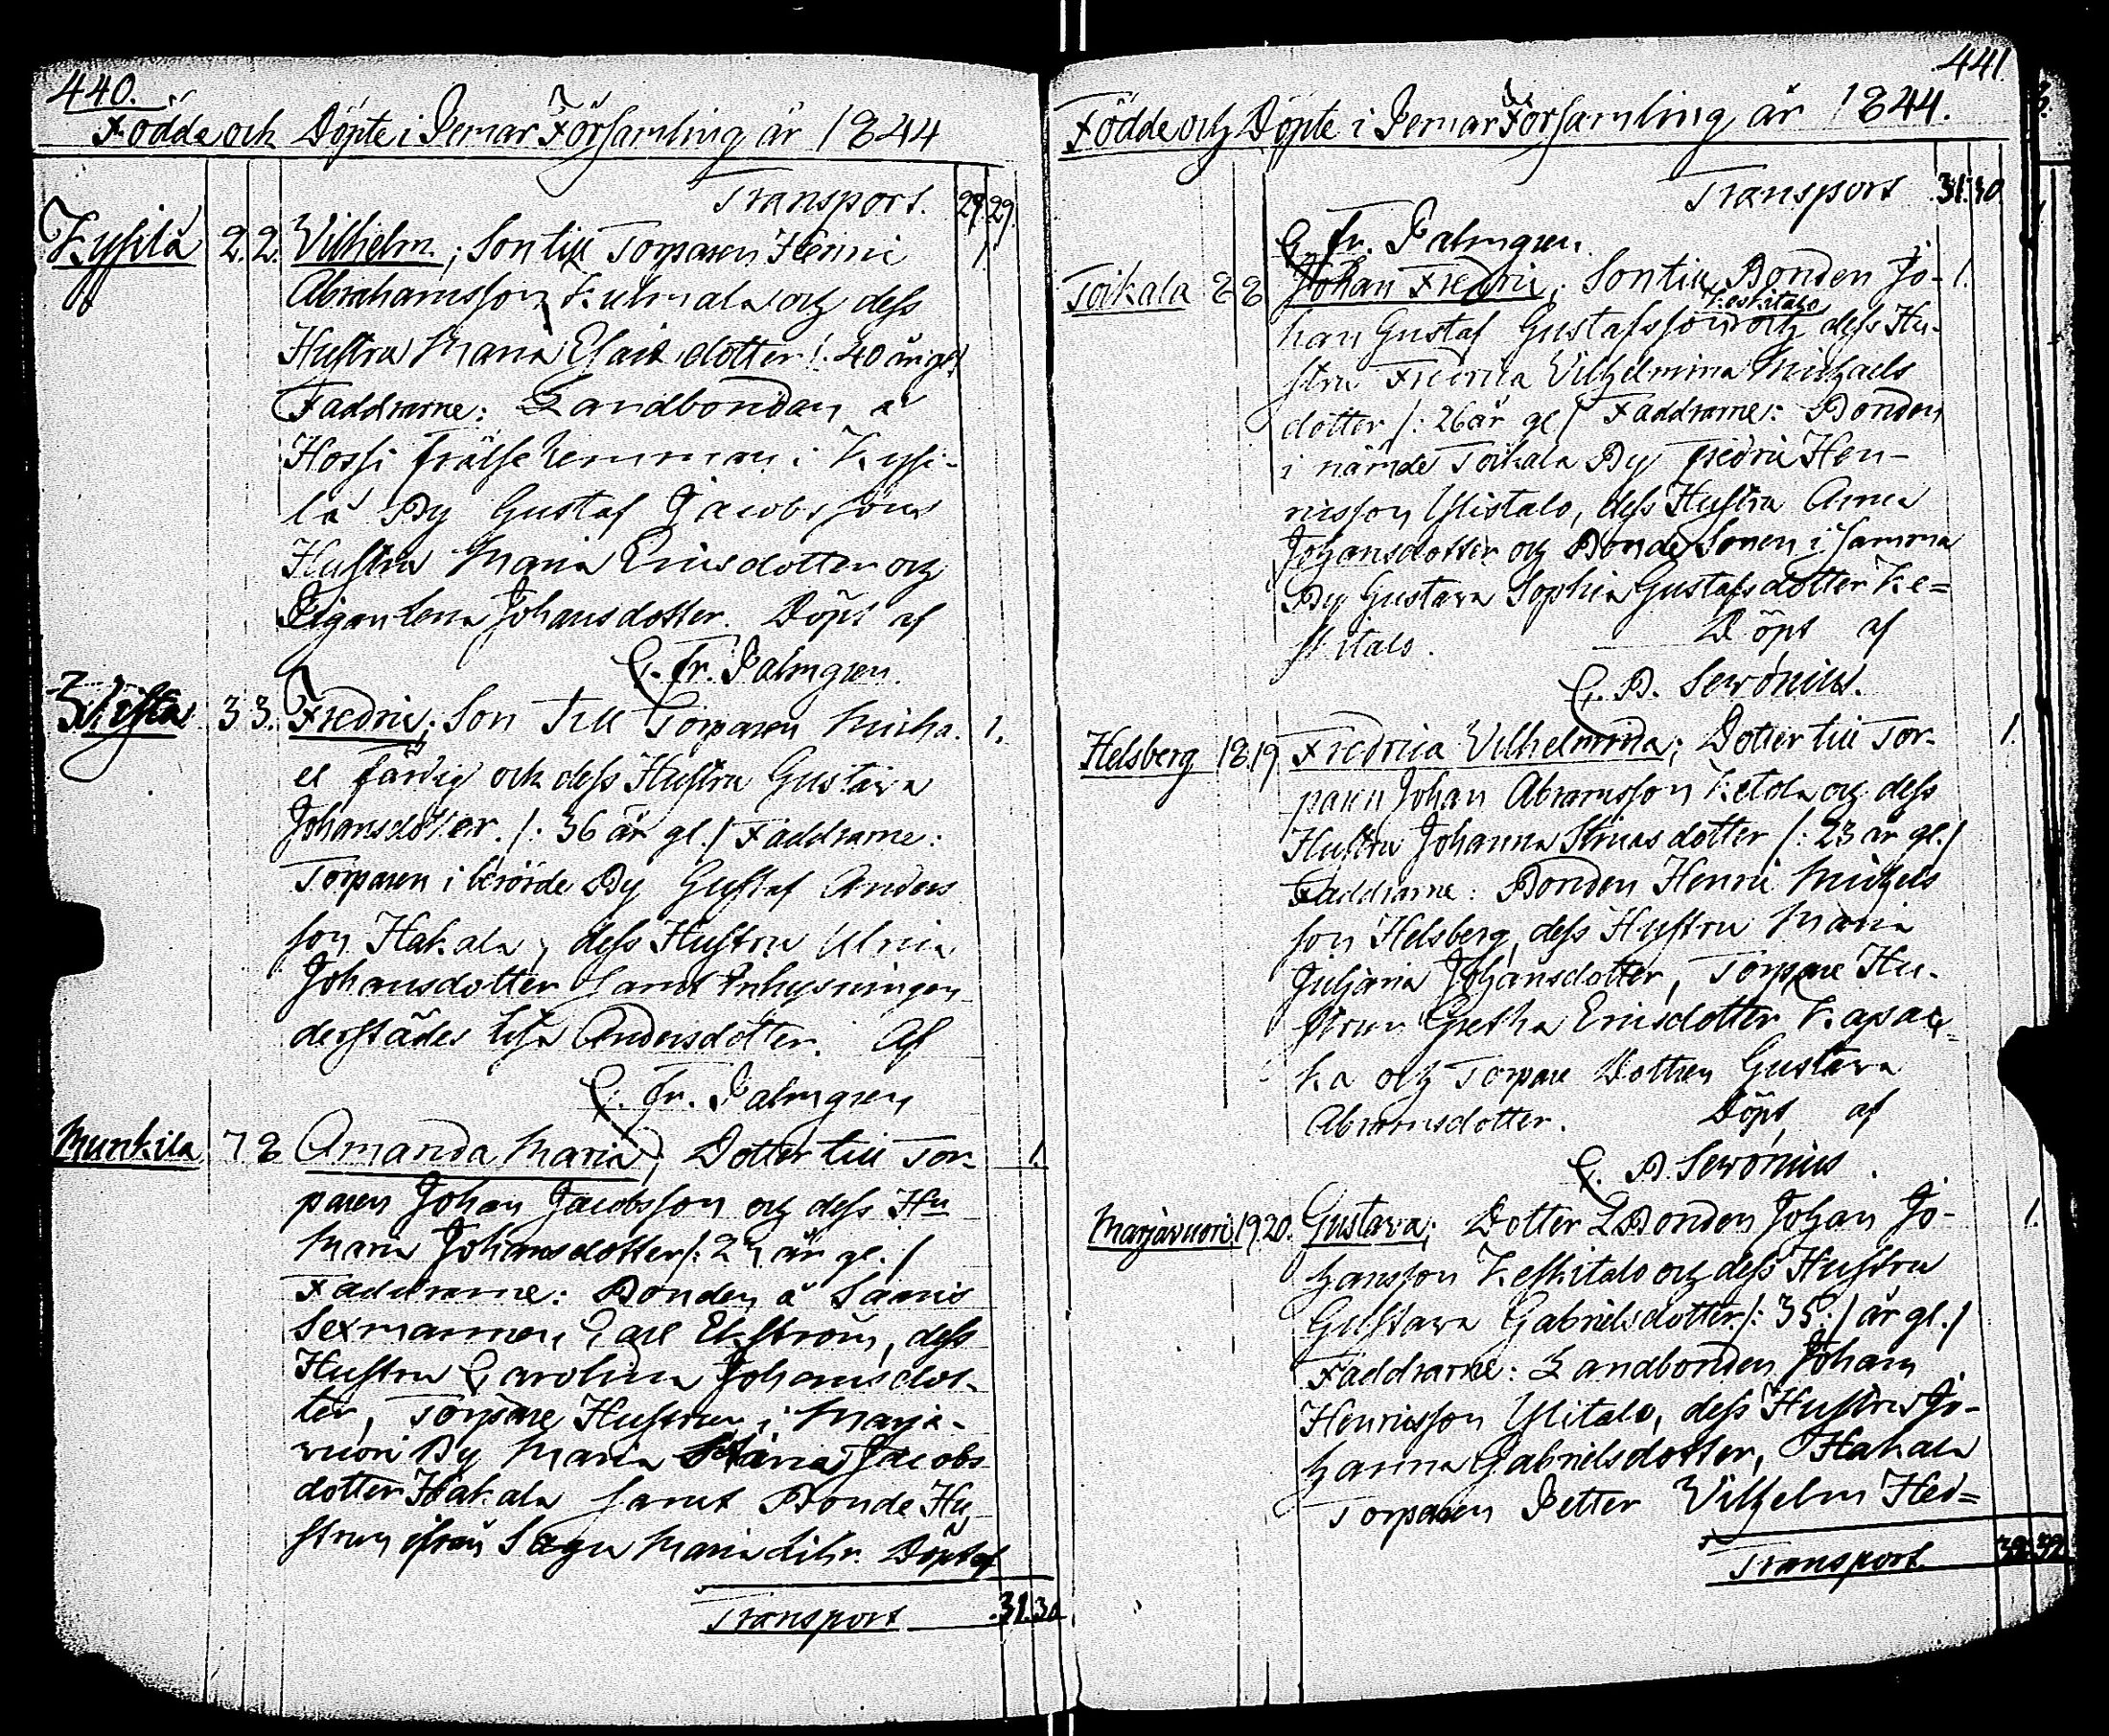 440.
Födde och Döpte i Pemar Församling år 1844
Transport. 29. 29.
Kysilä 2. 2. Vilhelm; Son till Torparen Henric 1.
Abrahamsson Kulmala och dess
Hustru Maria Esaiædotter /: 40 år gl./
Faddrarne: Landbondan å
Hossi frälse hemman i Kysi-
lä By Gustaf Jacobssons
Hustru Maria Ericsdotter och
Pigan Lena Johansdotter. Döpt af
C. Fr. Palmgren.
Vista 3 3. Fredric; Son till Torparen Micha- 1.
el Färdig och dess Hustru Gustava
Johansdotter. /: 36 år gl./ Faddrarne:
Torparen i berörde By Gustaf Anders
son Hakala, dess Hustru Ulrica
Johansdotter samt Inhysningen
derstädes Lisa Andersdotter. Af
C. Fr. Palmgren
Munkila 7 8 Amanda Maria; Dotter till Tor- 1.
paren Johan Jacobsson och dess Hu
Maria Johansdotter /: 27 år gl. /
Faddrarne: Bonden å Saaris
Sexmannen, Carl Ekström, dess
Hustru Carolina Johansdot-
ter, Torpare Hustrun i Marja-
vuori By Maria Jacobs
dotter Hakala samt Bonde Hu-
strun ifrån Sagu Maria Lihr. Döpt af
Transport 31. 30
441
Födde och Döpte i Pemar Församling år 1844.
Transport 31. 30
C. Fr. Palmgren.
Toikala 8 8 Johan Fredric; Son till Bonden Jo- 1.
Keskitalo
han Gustaf Gustafsson och dess Hu-
stru Fredrica Vilhelmina Michaels
dotter /: 26 år gl / Faddrarne: Bonden
i nämde Toikala By Fredric Hen-
ricsson Ylistalo, dess Hustru Anna
Johansdotter och Bonde Sonen i samma
By Gustava Sophia Gustafsdotter Ke=
skitalo. Döpt af
C. B. Serónius.
Helsberg 18. 19 Fredrica Vilhelmina; Dotter till Tor- 1.
paren Johan Abramsson Ketola och dess
Hustru Johanna Henricsdotter /: 23 år gl./
Faddrarne: Bonden Henric Michels
son Helsberg, dess Hustru Maria
Juliana Johansdotter, Torpare Hu-
strun Gretha Ericsdotter Kapac-
ka och Torpare Dottren Gustava
Abramsdotter. Döpt af
C. B. Serónius.
Marjavuori 19. 20. Gustava; Dotter L Bonden Johan Jo- 1.
hansson Keskitalo och dess Hustru
Gustava Gabrielsdotter /: 35 :/ år gl./
Faddrarne: Landbonden Johan
Henricsson Ylitalo, dess Hustru Jo-
hanna Gabrielsdotter, Hakala
Torparen Petter Vilhelm Hed=
Transport 32. 32